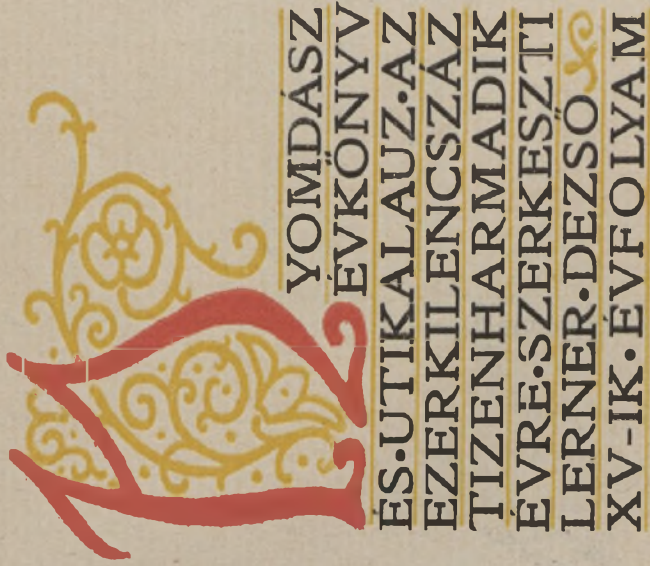 NYOMDÁSZ
ÉVKÖNYV
ÉS•UTIKALAUZ•AZ
EZERKILENCSZÁZ
TIZENHARMADIK
ÉVRE•SZERKESZTI
LERNER•DEZSŐ
XV-IK•ÉVFOLYAM